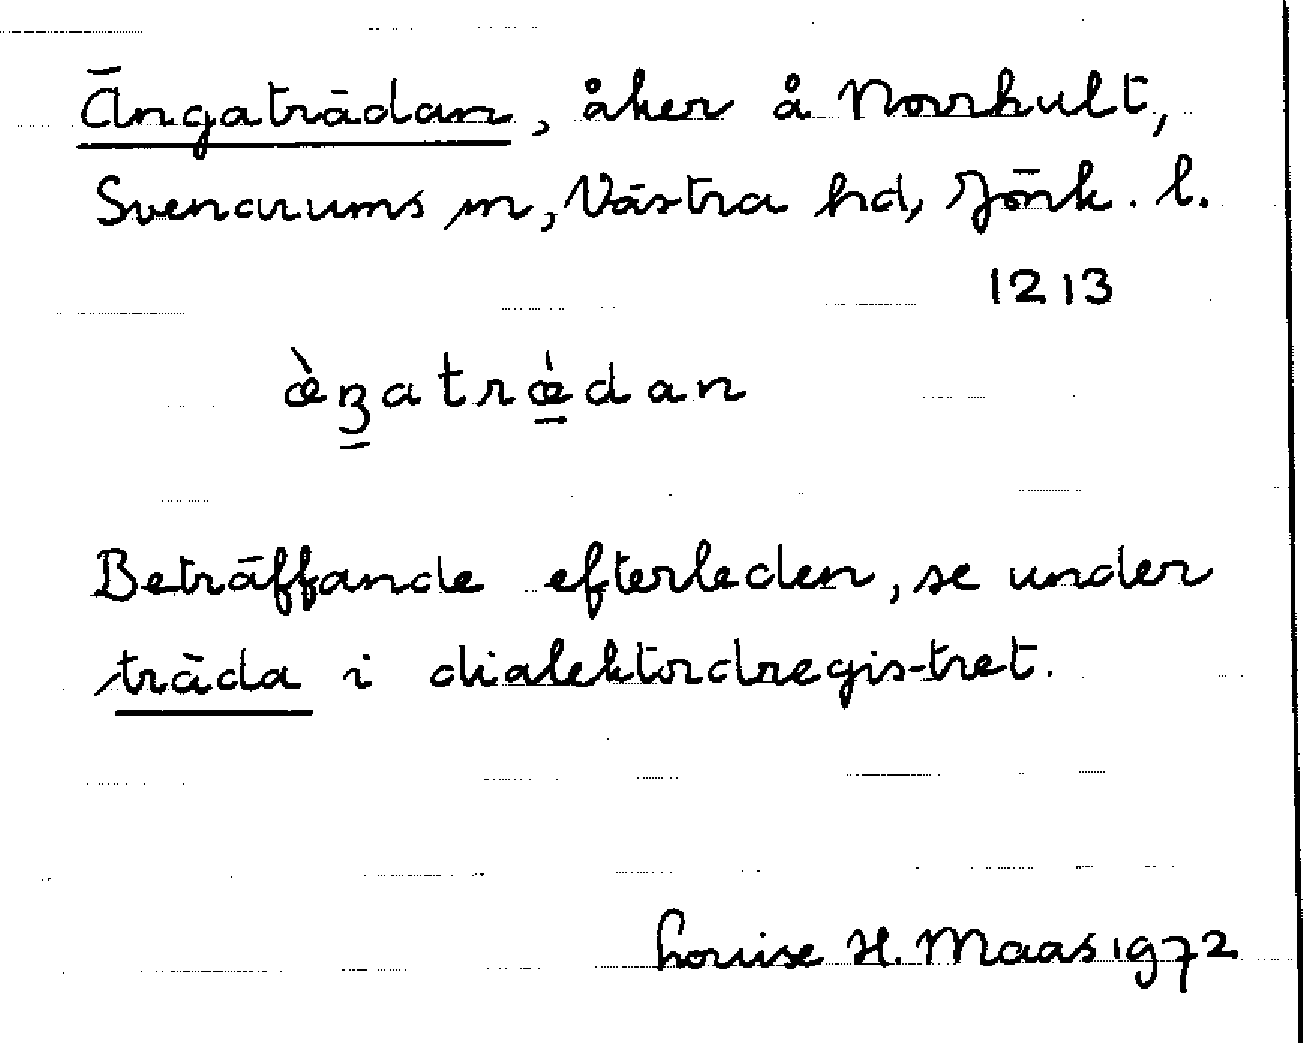 Ängaträdan, åker å Norrkult,
Svenarums sn, Västra hd, Jönk. l.
1213
æ̀ŋatræ̀dan
Beträffande efterleden, se under
träda i dialektordregistret.
Louise H. Maas 1972